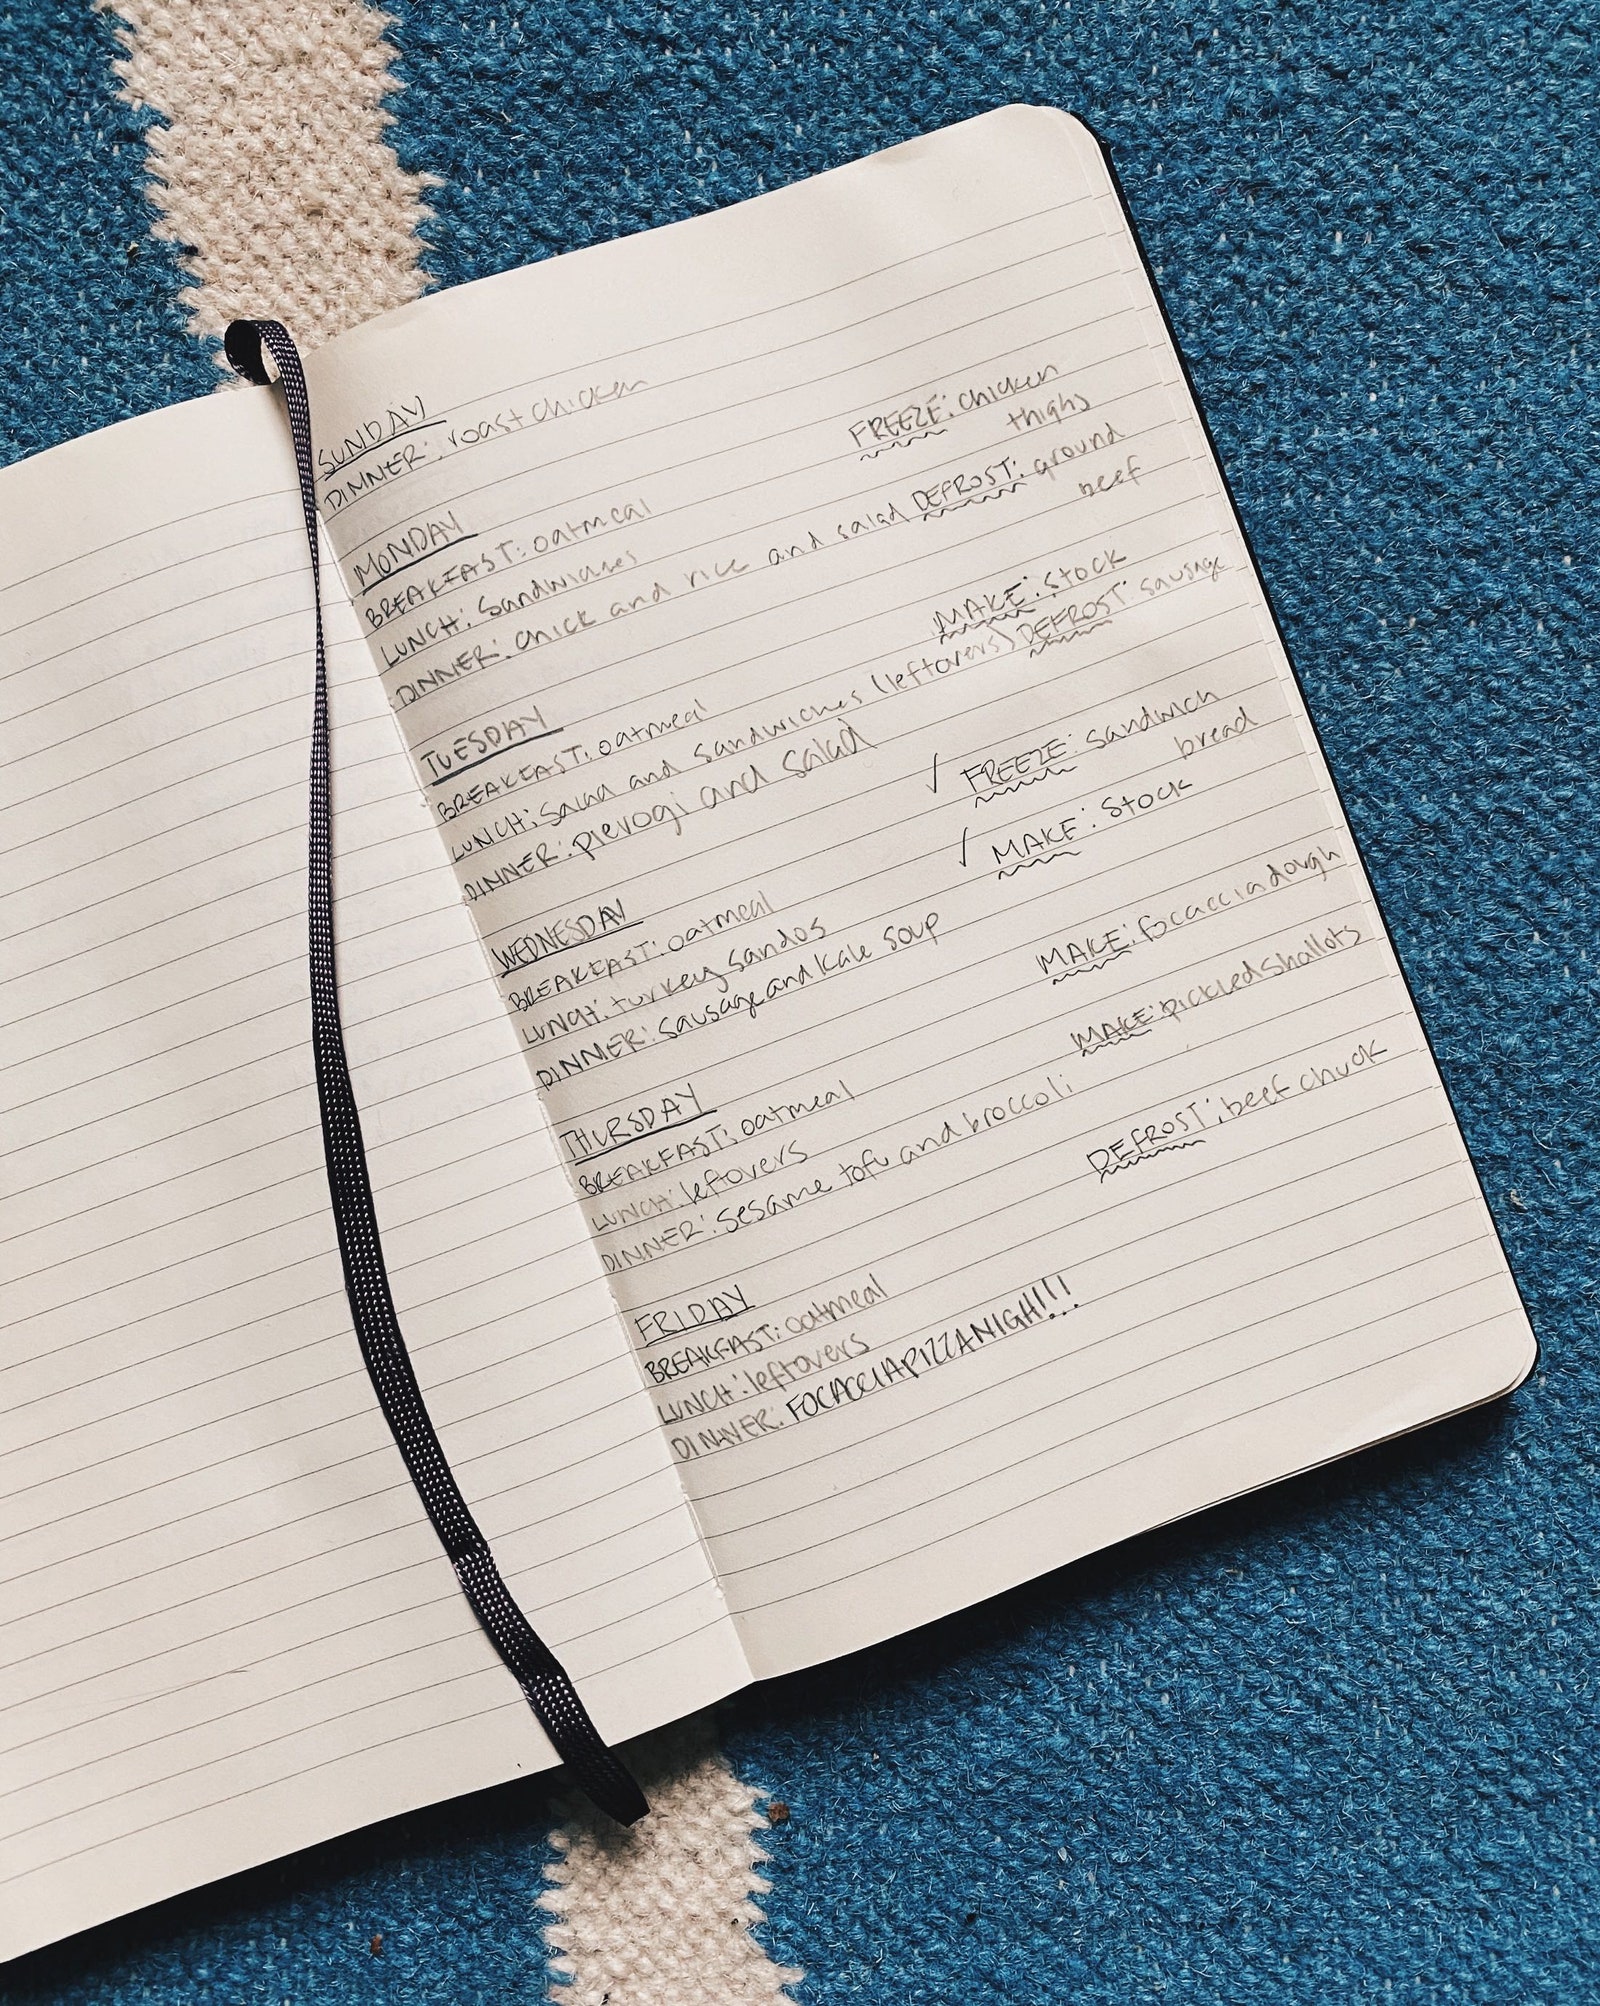 SUNDAY
DINNER: roast chicken
MONDAY
FREEZE: chicken
thighs
BREAKFAST: oatmeal
LUNCH: Sandwiches
DINNER: chick and rice and salad DEFROST: ground
beef
TUESDAY
MAKE: stock
BREAKFAST: oatmeal
LUNCH: Salad and sandwiches (leftovers) DEFROST: sausage
DINNER: pierogi and salad
WEDNESDAY
✓ FREEZE: sandwich
bread
BREAKFAST: oatmeal
✓ MAKE: stock
LUNCH: turkey sandos
DINNER: sausage and kale soup
THURSDAY
MAKE: focaccia dough
BREAKFAST: oatmeal
LUNCH: leftovers
MAKE: pickled shallots
DINNER: sesame tofu and broccoli
FRIDAY
DEFROST: beef chuck
BREAKFAST: oatmeal
LUNCH: leftovers
DINNER: FOCACCIA PIZZA NIGH!!!